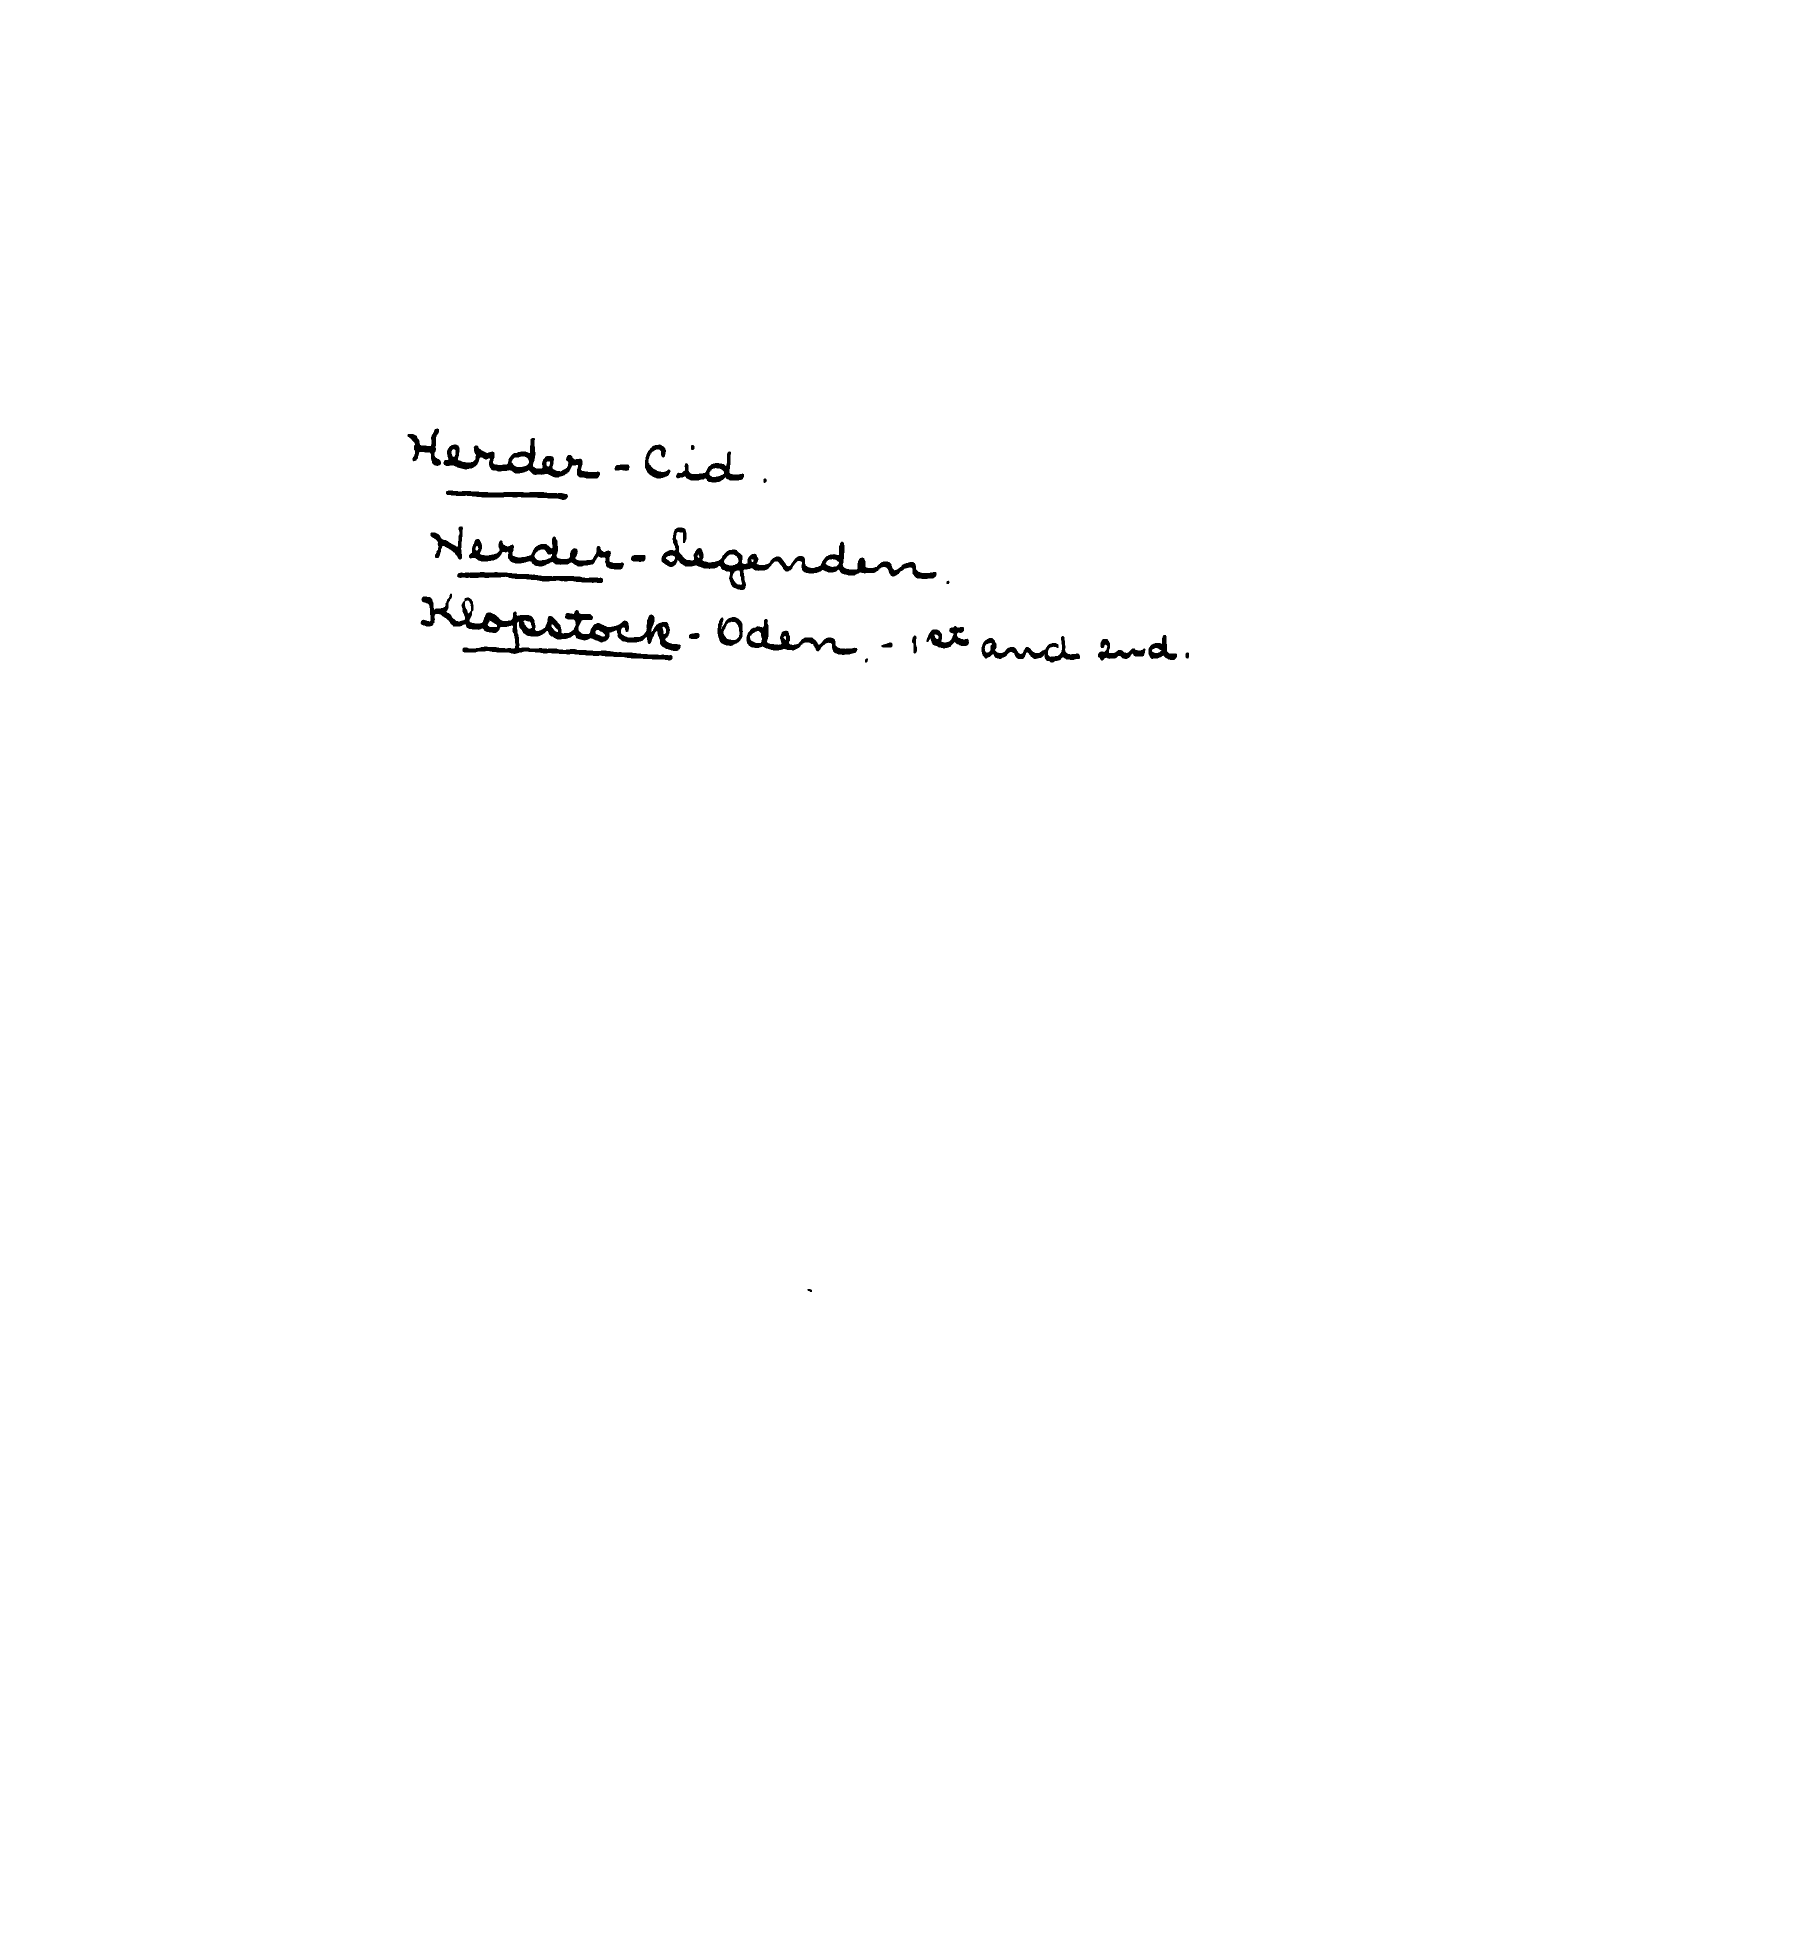 Herder - Cid.
Herder - Legenden.
Klopstock - Oden. - 1st and 2nd.